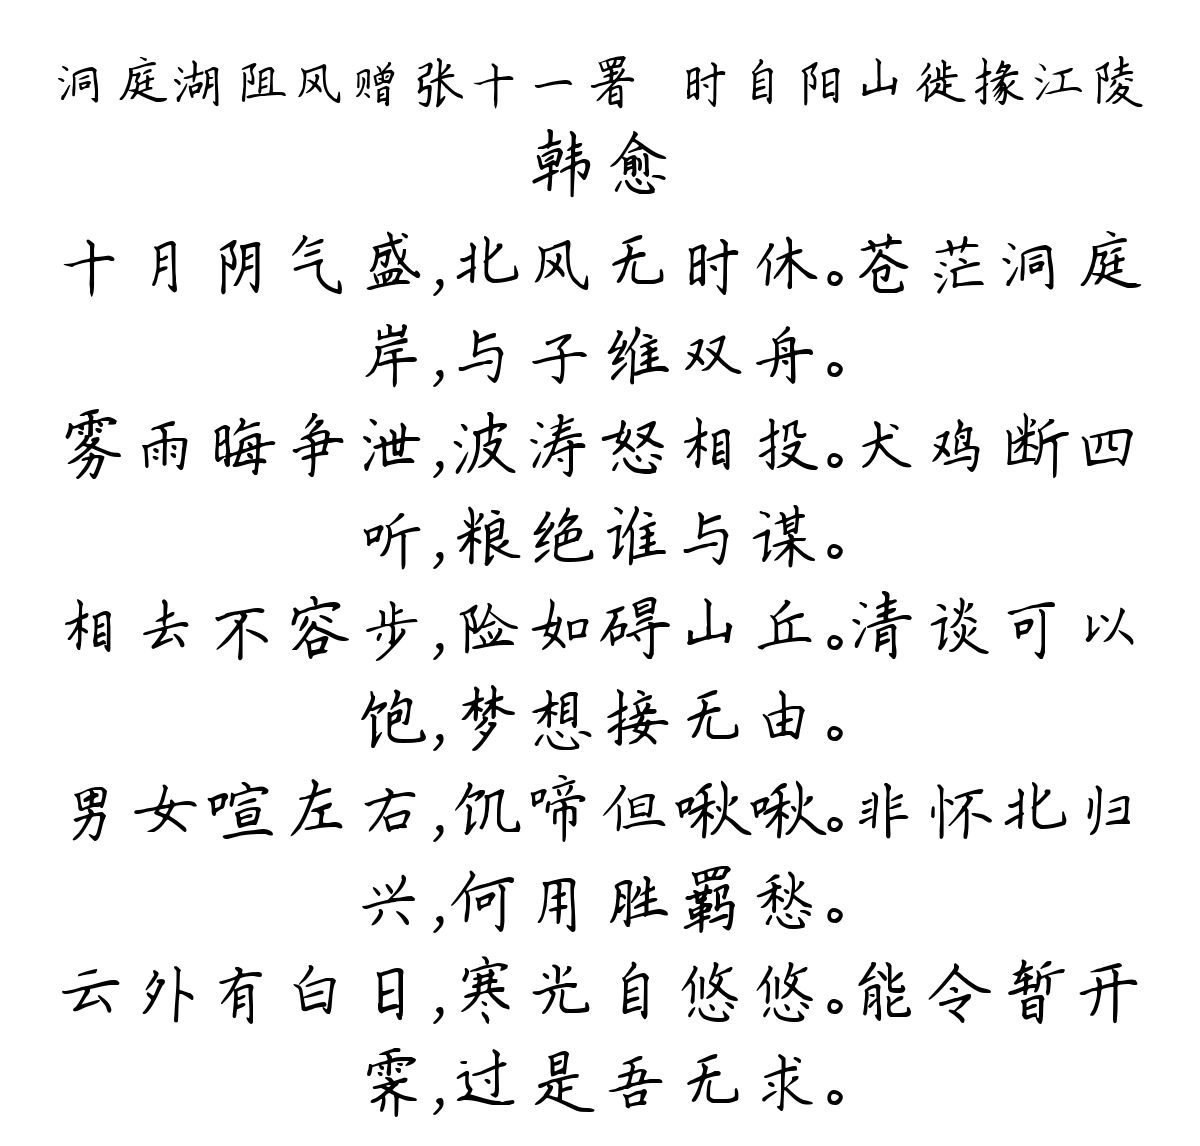 洞庭湖阻风赠张十一署 时自阳山徙掾江陵
韩愈
十月阴气盛,北风无时休。苍茫洞庭
岸,与子维双舟。
雾雨晦争泄,波涛怒相投。犬鸡断四
听,粮绝谁与谋。
相去不容步,险如碍山丘。清谈可以
饱,梦想接无由。
男女喧左右,饥啼但啾啾。非怀北归
兴,何用胜羁愁。
云外有白日,寒光自悠悠。能令暂开
霁,过是吾无求。